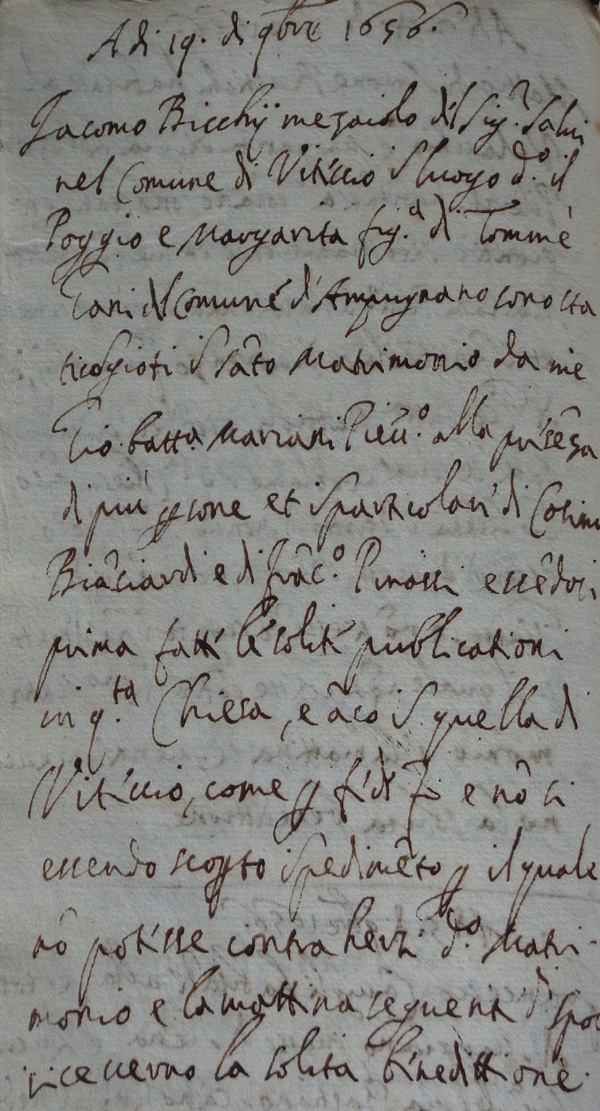 A di 19. di 9bre 1656.
Jacomo Bicchij mezaiolo del Sig.r Salvi
nel Comune di Viticcio i luogo d.o il
Poggio e Margarita fig.a di Tommè
del Comune d'Ampugnano sono sta
ti cōgioti i sāto Matrimonio da me
Gio batt.a Mariani Piev.o alla presēza
di più psone et i particolari di Cosimo
Biāciardi e di Frāc.o Pinossi essēdosi
prima fatte le solite publicationi
in q.ta Chiesa, e āco i quella di
Viticcio, come p fede di e nō si
essendo scopto ipedimēto p il quale
nō potesse contrahersi d.o Matri-
monio e la mattina seguente d.i spos
riceverno la solita benedittione.